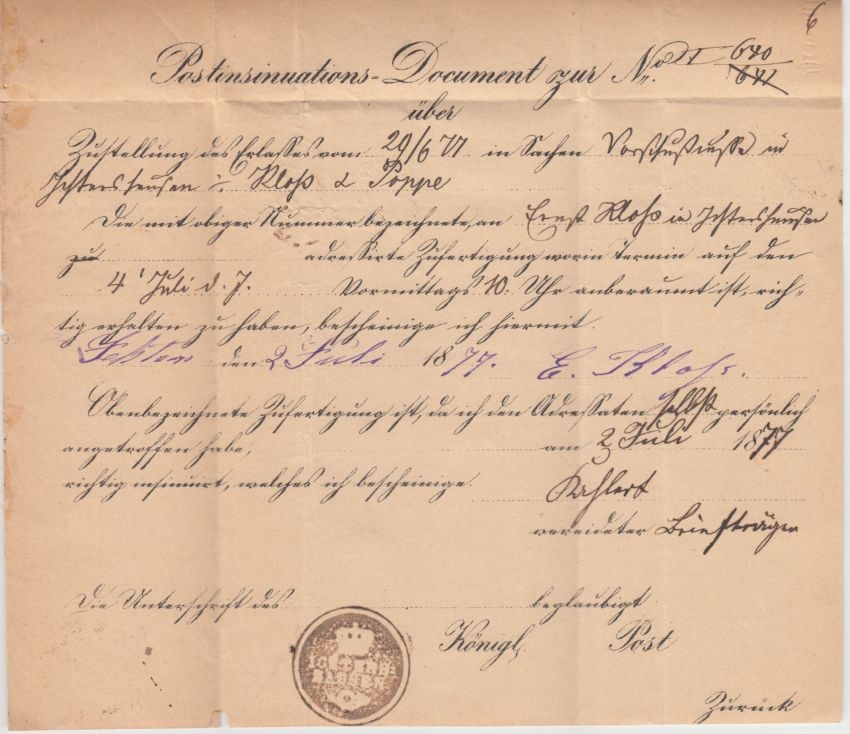 6
Postinsinuations-Document zur No. 640
641
über
Zustellung des Erlasses vom 29/6 77 in Sachen Vorschußkasse in
Ichtershausen ÷ Kloß & Poppe
Die mit obiger Nummer bezeichnete, an Ernst Kloß in Ichtershausen
zu adressirte Zufertigung worin Termin auf den
4' Juli d. J. Vormittags 10. Uhr anberaumt ist, rich-
tig erhalten zu haben, bescheinige ich hiermit.
den 2 Juli 1877. E. Kloß.
Obenbezeichnete Zufertigung ist, da ich den Adressaten selbst persönlich
angetroffen habe, am 2 Juli 1877
richtig insinuirt, welches ich bescheinige.
Kahlert
vereideter Briefträger
Die Unterschrift des beglaubigt
Königl. Post
ICHTERS
HAUSEN
Zurück